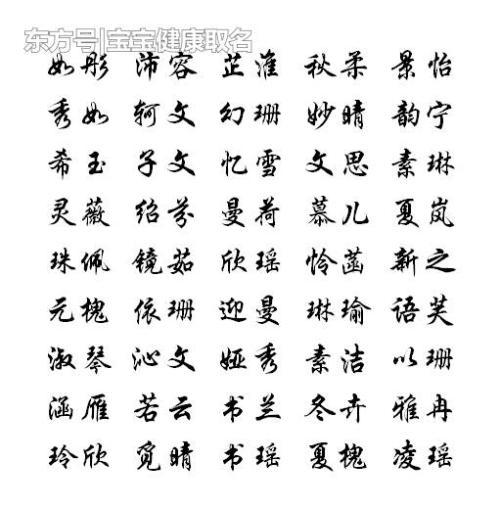 东方号|宝宝健康取名
如彤 沛容 芷淮 秋柔 景怡
秀如 轲文 幻珊 妙晴 韵宁
希玉 子文 忆雪 文思 素琳
灵薇 绍芬 曼荷 慕儿 夏岚
珠佩 镜茹 欣瑶 怜菡 新之
元槐 依珊 迎曼 琳瑜 语芙
淑琴 沁文 娅秀 素洁 以珊
涵雁 若云 书兰 冬卉 雅冉
玲欣 觅晴 书瑶 夏槐 凌瑶